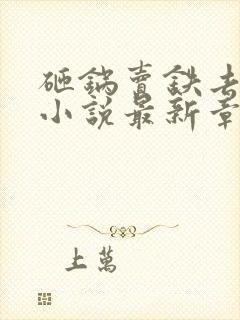 砸鍋賣鉄去
小說最新章
上萬